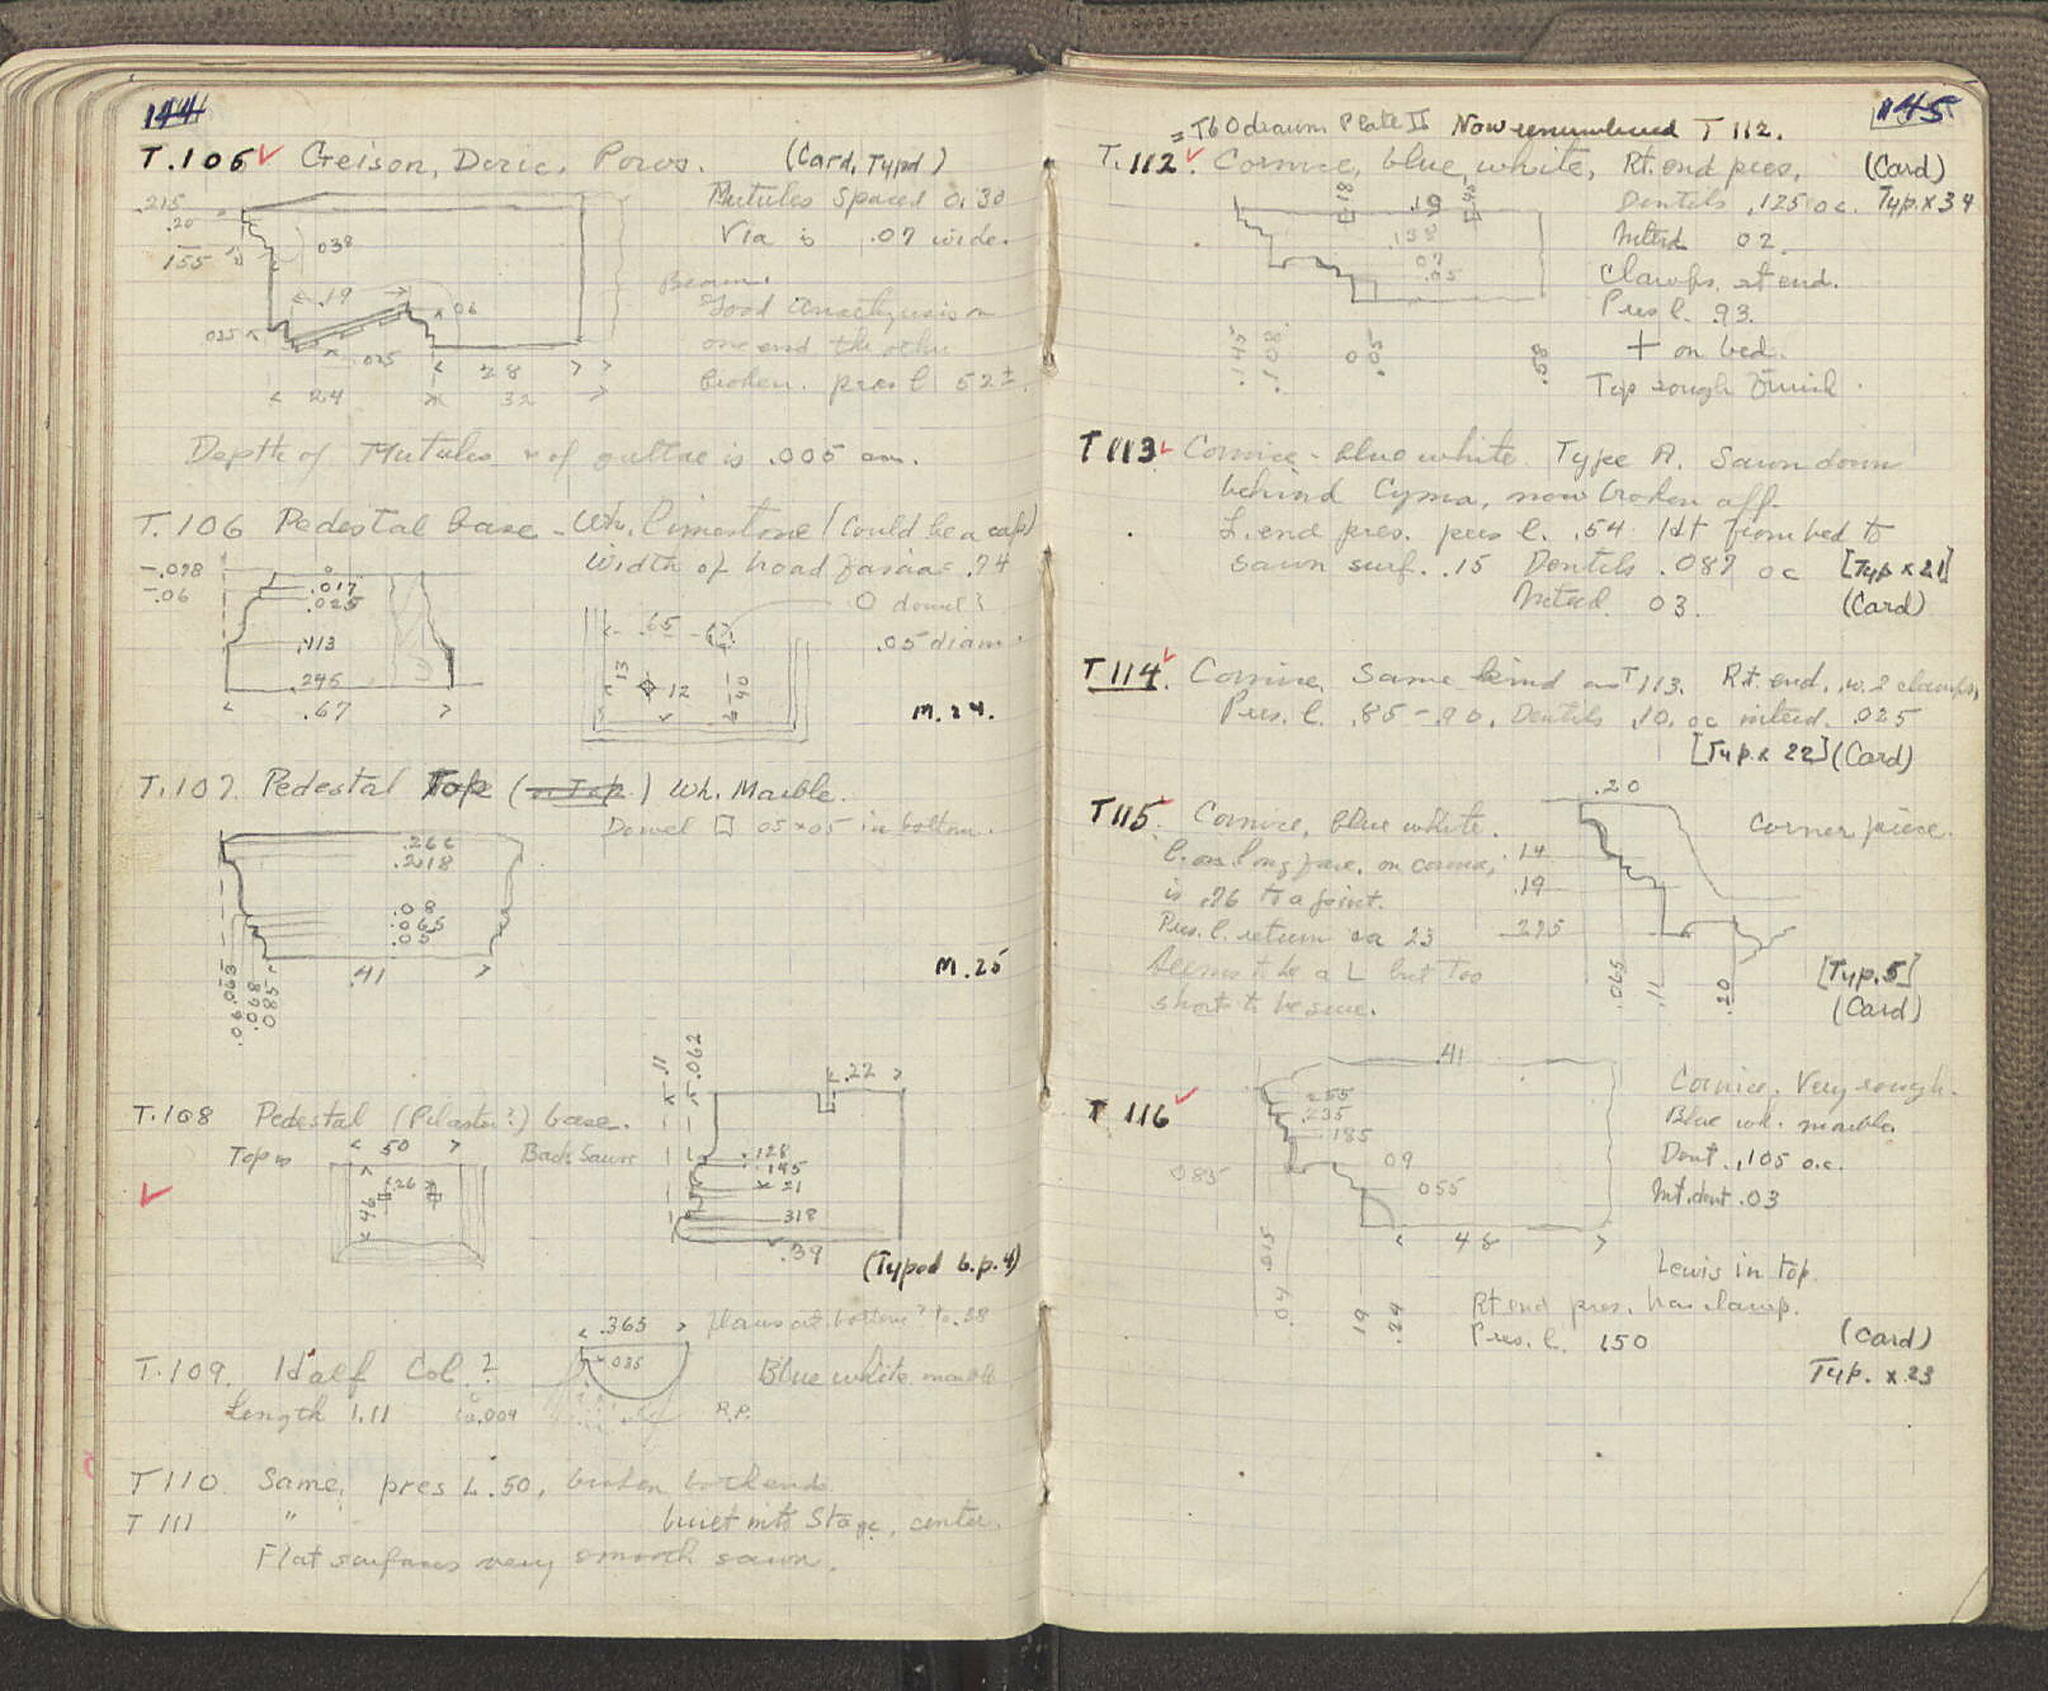 144
T.105 Geison, Doric, Poros. (Card, Typd)
Mutules Spaced 0.30
Via is .07 wide.
.215
.20
.155
.038
.19
.06
.025
.025
28
24
32
Good anathyrosis on
one end the other
broken. pres l 52±.
Depth of Mutules & of guttae is .005 cm.
T.106 Pedestal base - Wh. limestone (Could be a cap)
Width of broad fascia = .74
.078
.06
.017
.025
.113
.245
.67
O dowel?
.05 diam.
.65
13
12
40
M.24.
T.107. Pedestal Top (or Top) Wh. Marble.
Dowel □ 05×05 in bottom.
.266
.218
.08
.065
.05
.41
.06
.063
.068
.085
M.25
T.108 Pedestal (Pilaster?) base.
Top is
50
.26
46
Back Sawn
.11
.062
.22
.128
.145
21
318
.39
(Typed b.p. 4)
T.109. Half Col.?
.365
.035
Blue white marble
Length 1.11
R.P.
T 110 Same, pres L .50, broken both ends
T 111 " built into Stage, center.
Flat surfaces very smooth sawn.
145
= T60 drawn Plate II Now renumbered T 112.
T.112. Cornice, blue white, Rt. end pres, (Card)
Dentils .125 oc. Typ. x 34
Interd. 02.
Clamps at end.
Pres l. .93.
+ on bed.
Top rough finish.
.18
.19
.138
.07
.05
.145
.108
0
.05
.58
T 113 Cornice - blue white. Type A. Sawn down
behind Cyma, now broken off.
L. end pres. pres l. .54 Ht from bed to
sawn surf. .15 Dentils .087 oc [Typ x 21]
Interd. 03. (Card)
T 114. Cornice. Same kind as T 113. Rt. end, w. 2 clamps,
Pres. l. .85-.90. Dentils .10. oc interd. .025
[Typ. x 22] (Card)
T 115. Cornice, blue white.
.20
Corner piece.
l. on long face, on corona,
is .76 to a joint.
Pres. l. return ca 23
Seems to be a L but too
short to be sure.
.14
.19
.295
.065
.11
.20
[Typ. 5]
(Card)
T 116
.41
Cornice. Very rough.
Blue wh. marble.
Dent. .105 o.c.
Int. dent .03
255
235
185
09
055
085
48
.015
.04
19
.24
Lewis in top.
Rt end pres. has clamp.
Pres. l. 150
(Card)
Typ. x.23